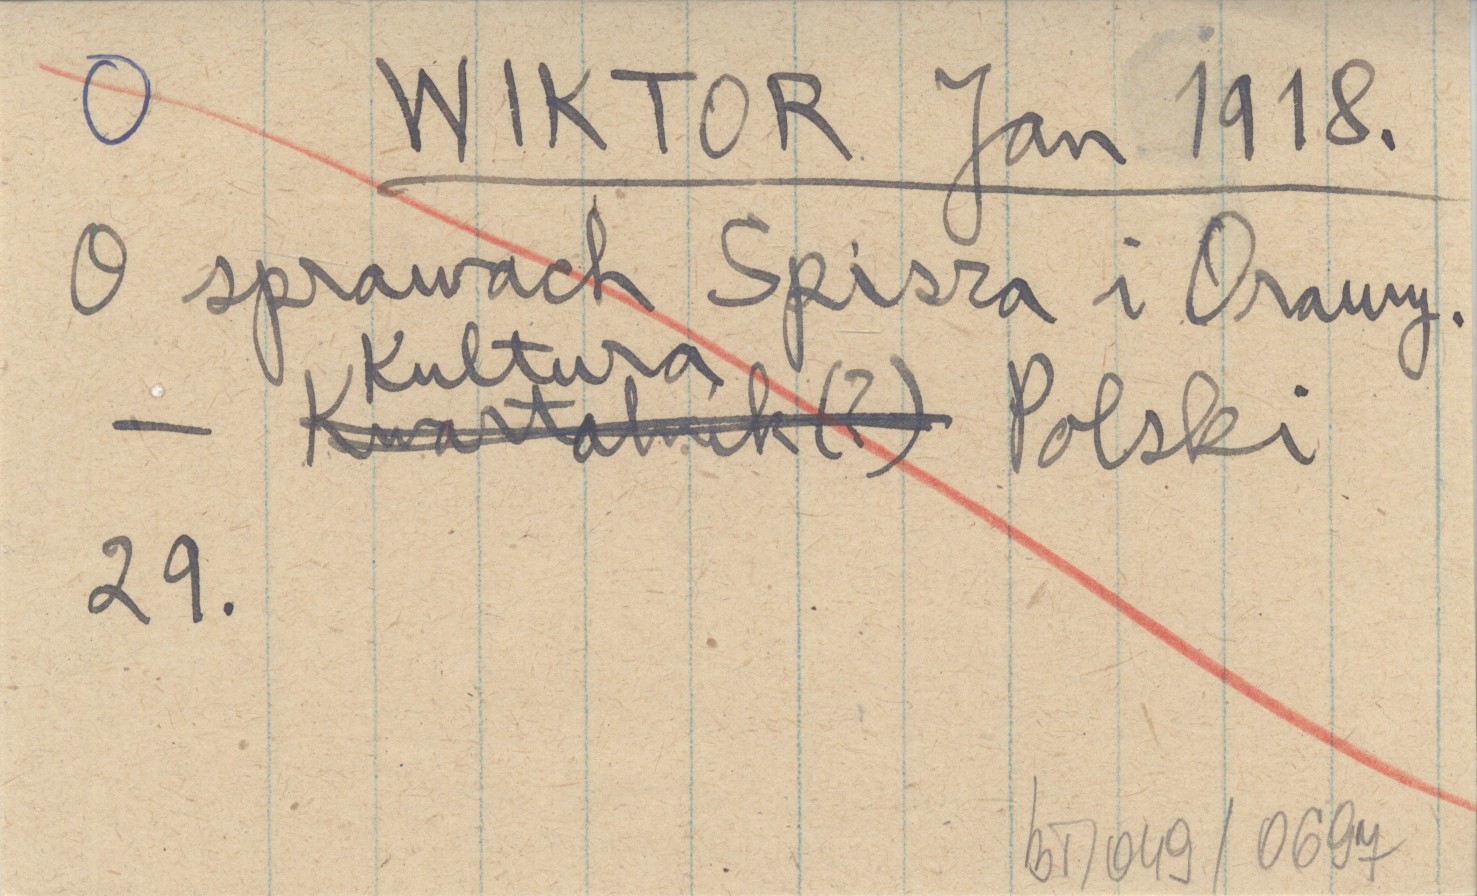 O WIKTOR Jan 1918.
O sprawach Spisza i Orawy.
Kultura
— Kwartalnik(?) Polski
29.
bT/049/0697